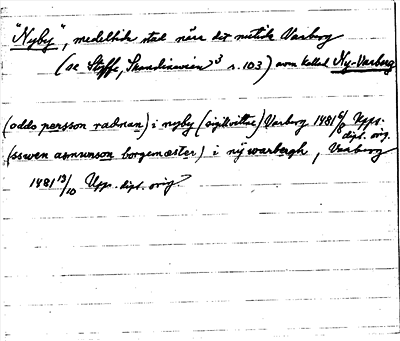 "Nyby", medeltida stad nära det nutida Varberg
(se Styffe, Skandinavien³ s. 103) även kallad Ny-Varberg
(oddo persson radman) i nyby (sigillvittne) Varberg 1481 6/8 Upps.
dipl. orig.
(sswen asmunson borgemæster) i nÿwarbergh, Varberg
1481 13/10 Upps. dipl. orig.